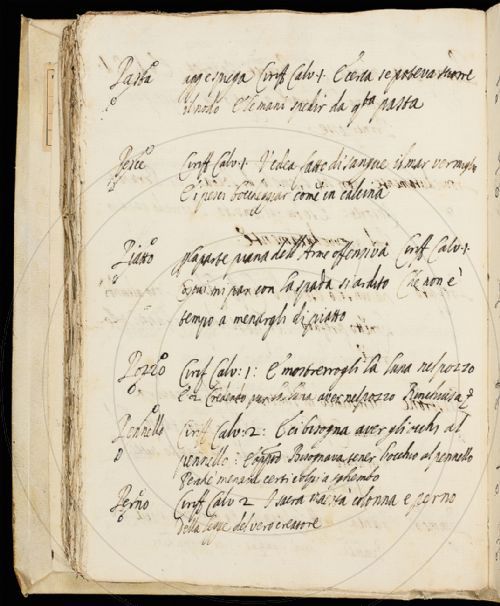 Pasta
Ciriff Calv. 1. E cerca se poteva sciorre
il nodo E le mani spedir da qsta pasta
Pesce
Ciriff Calv. 1. Vedea fatto di sangue il mar vermiglio
E i pesci boccheggiar come in calcina
Piatto
p la parte piana dell Arme offensiva Ciriff Calv. 1.
mi par con la spada si ardito Che non è
tempo a menargli di piatto
Pozzo
Cirif Calv: 1: E mostrerrogli la luna nel pozzo
E à creduto la luna aver nel pozzo
Pennello
Ciriff Calv: 2: E ci bisogna aver gli occhi al
pennello: Bisognava tener l'occhio al pennello
Perche mena certi colpi a sghembo
Perno
Ciriff Calv 2 colonna e perno
Della fede del vero creatore